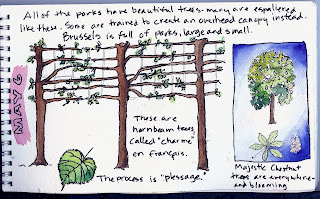 All of the parks have beautiful trees - many are espaliered
like these. Some are trained to create an overhead canopy instead.
Brussels is full of parks, large and small.
MAY 6
These are
hornbeam trees,
called "charme"
en français.
The process is "plessage."
Majestic Chestnut
trees are everywhere -
and blooming